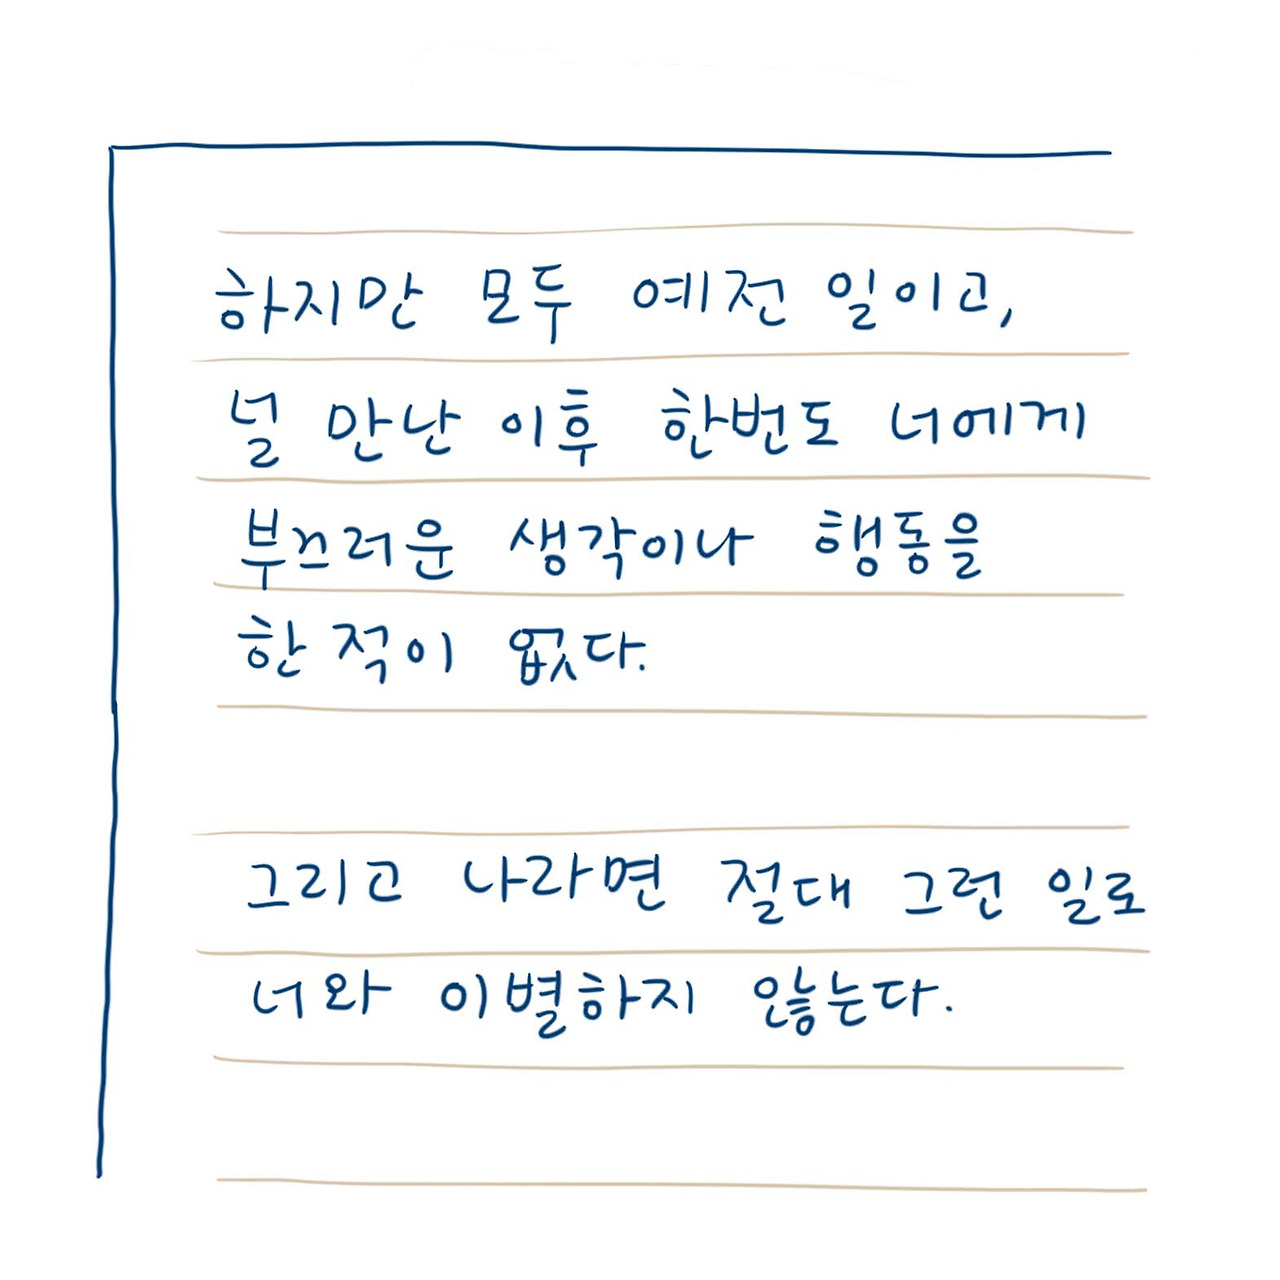 하지만 모두 예전 일이고,
널 만난 이후 한번도 너에게
부끄러운 생각이나 행동을
한 적이 없다.
그리고 나라면 절대 그런 일로
너와 이별하지 않는다.